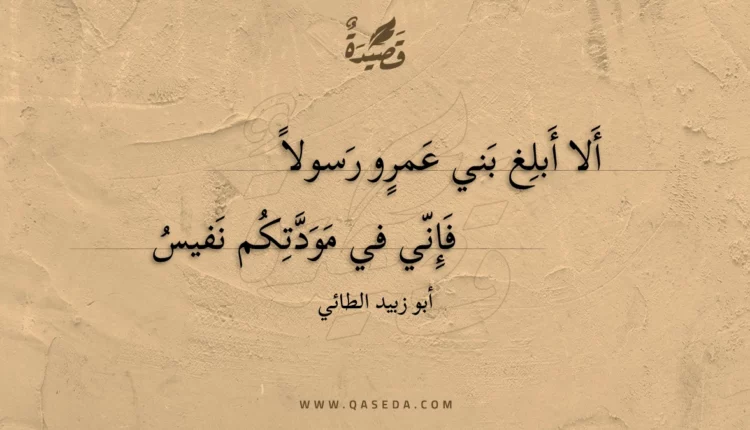 قَصِيدَةٌ
أَلا أَبلِغ بَني عَمرٍو رَسولاً
فَإِنّي في مَوَدَّتِكُم نَفيسُ
أبو زبيد الطائي
WWW.QASEDA.COM